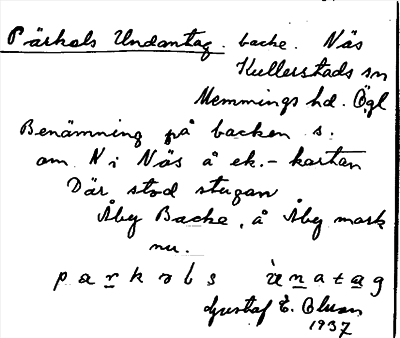 Pärkals Undantag. backe. Näs
Kullerstads sn
Memmings hd. Ögl
Benämning på backen s.
om N i Näs å ek.-kartan
Där stod stugan
Åby Backe, å Åby mark
nu.
Gustaf E.
1937